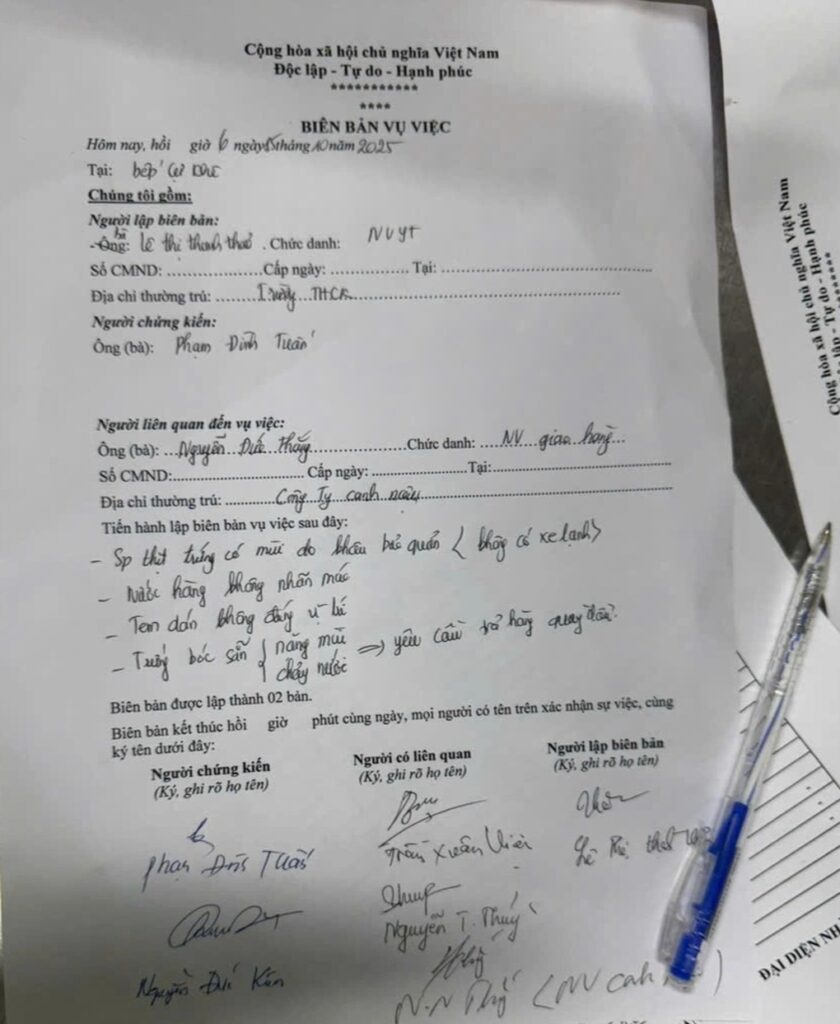 Cộng hòa xã hội chủ nghĩa Việt Nam
Độc lập - Tự do - Hạnh phúc
***********
****
BIÊN BẢN VỤ VIỆC
Hôm nay, hồi giờ 6 ngày 15 tháng 10 năm 2025
Tại: bếp
Chúng tôi gồm:
Người lập biên bản:
Ông: bà Lê thị thanh thảo. Chức danh: NVYT
Số CMND: .................. Cấp ngày: ............... Tại: ........................................
Địa chỉ thường trú: ........ Trường THCS ........................................
Người chứng kiến:
Ông (bà): Phạm Đình Tuấn
Người liên quan đến vụ việc:
Ông (bà): ... Nguyễn Đức Thắng .................. Chức danh: .... NV giao hàng ...
Số CMND:......................... Cấp ngày: .................. Tại:...................................
Địa chỉ thường trú: ........... Công Ty .......................................
Tiến hành lập biên bản vụ việc sau đây:
- Sp thịt trứng có mùi do khâu bảo quản < không có xe lạnh >
- Nước hàng không nhãn mác
- Tem dán không đúng vị trí
- Trứng bóc sẵn { nặng mùi
chảy nước => yêu cầu trả hàng quay đầu.
Biên bản được lập thành 02 bản.
Biên bản kết thúc hồi giờ phút cùng ngày, mọi người có tên trên xác nhận sự việc, cùng
ký tên dưới đây:
Người chứng kiến Người có liên quan Người lập biên bản
(Ký, ghi rõ họ tên) (Ký, ghi rõ họ tên) (Ký, ghi rõ họ tên)
Phạm Đình Tuấn Trần Xuân Lê Thị
Nguyễn T. Thúy
Nguyễn Đức
(NV
Cộng hòa xã hội chủ nghĩa Việt Nam
lập - Tự do - Hạnh phúc
ĐẠI DIỆN NH